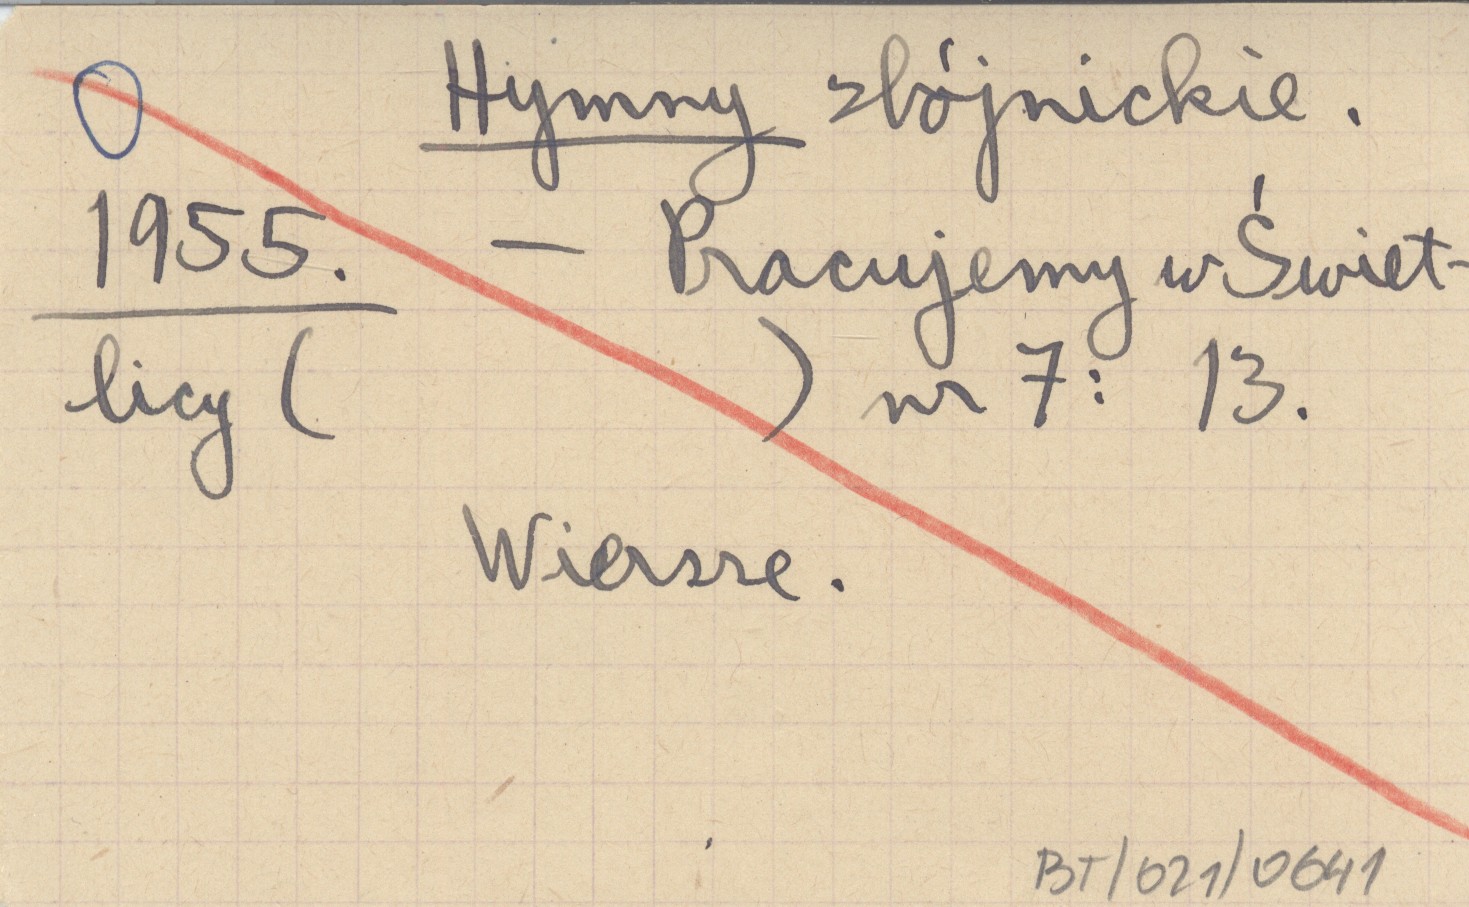 Hymny zbójnickie.
1955. — Pracujemy w Świet-
licy ( ) nr 7: 13.
Wiersze.
BT/021/0641